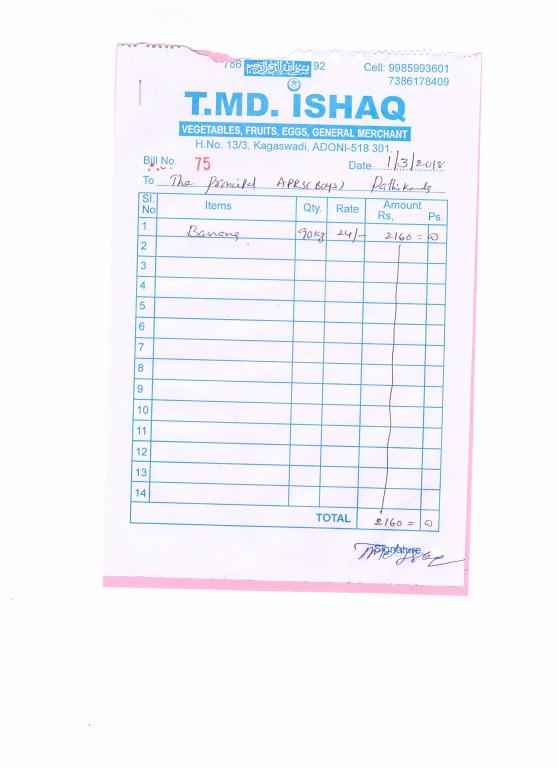 786 92
Cell: 9985993601
7386178409
T.MD. ISHAQ
VEGETABLES, FRUITS, EGGS, GENERAL MERCHANT
H.No. 13/3, Kagaswadi, ADONI-518 301.
Bill No. 75 Date 1/3/2018
To The Principal APRS(Boys)
Sl. No Items Qty. Rate Amount Rs, Ps.
1 Banana 90Kg 24/- 2160 = 00
2
3
4
5
6
7
8
9
10
11
12
13
14
TOTAL 2160 = 00
Signature